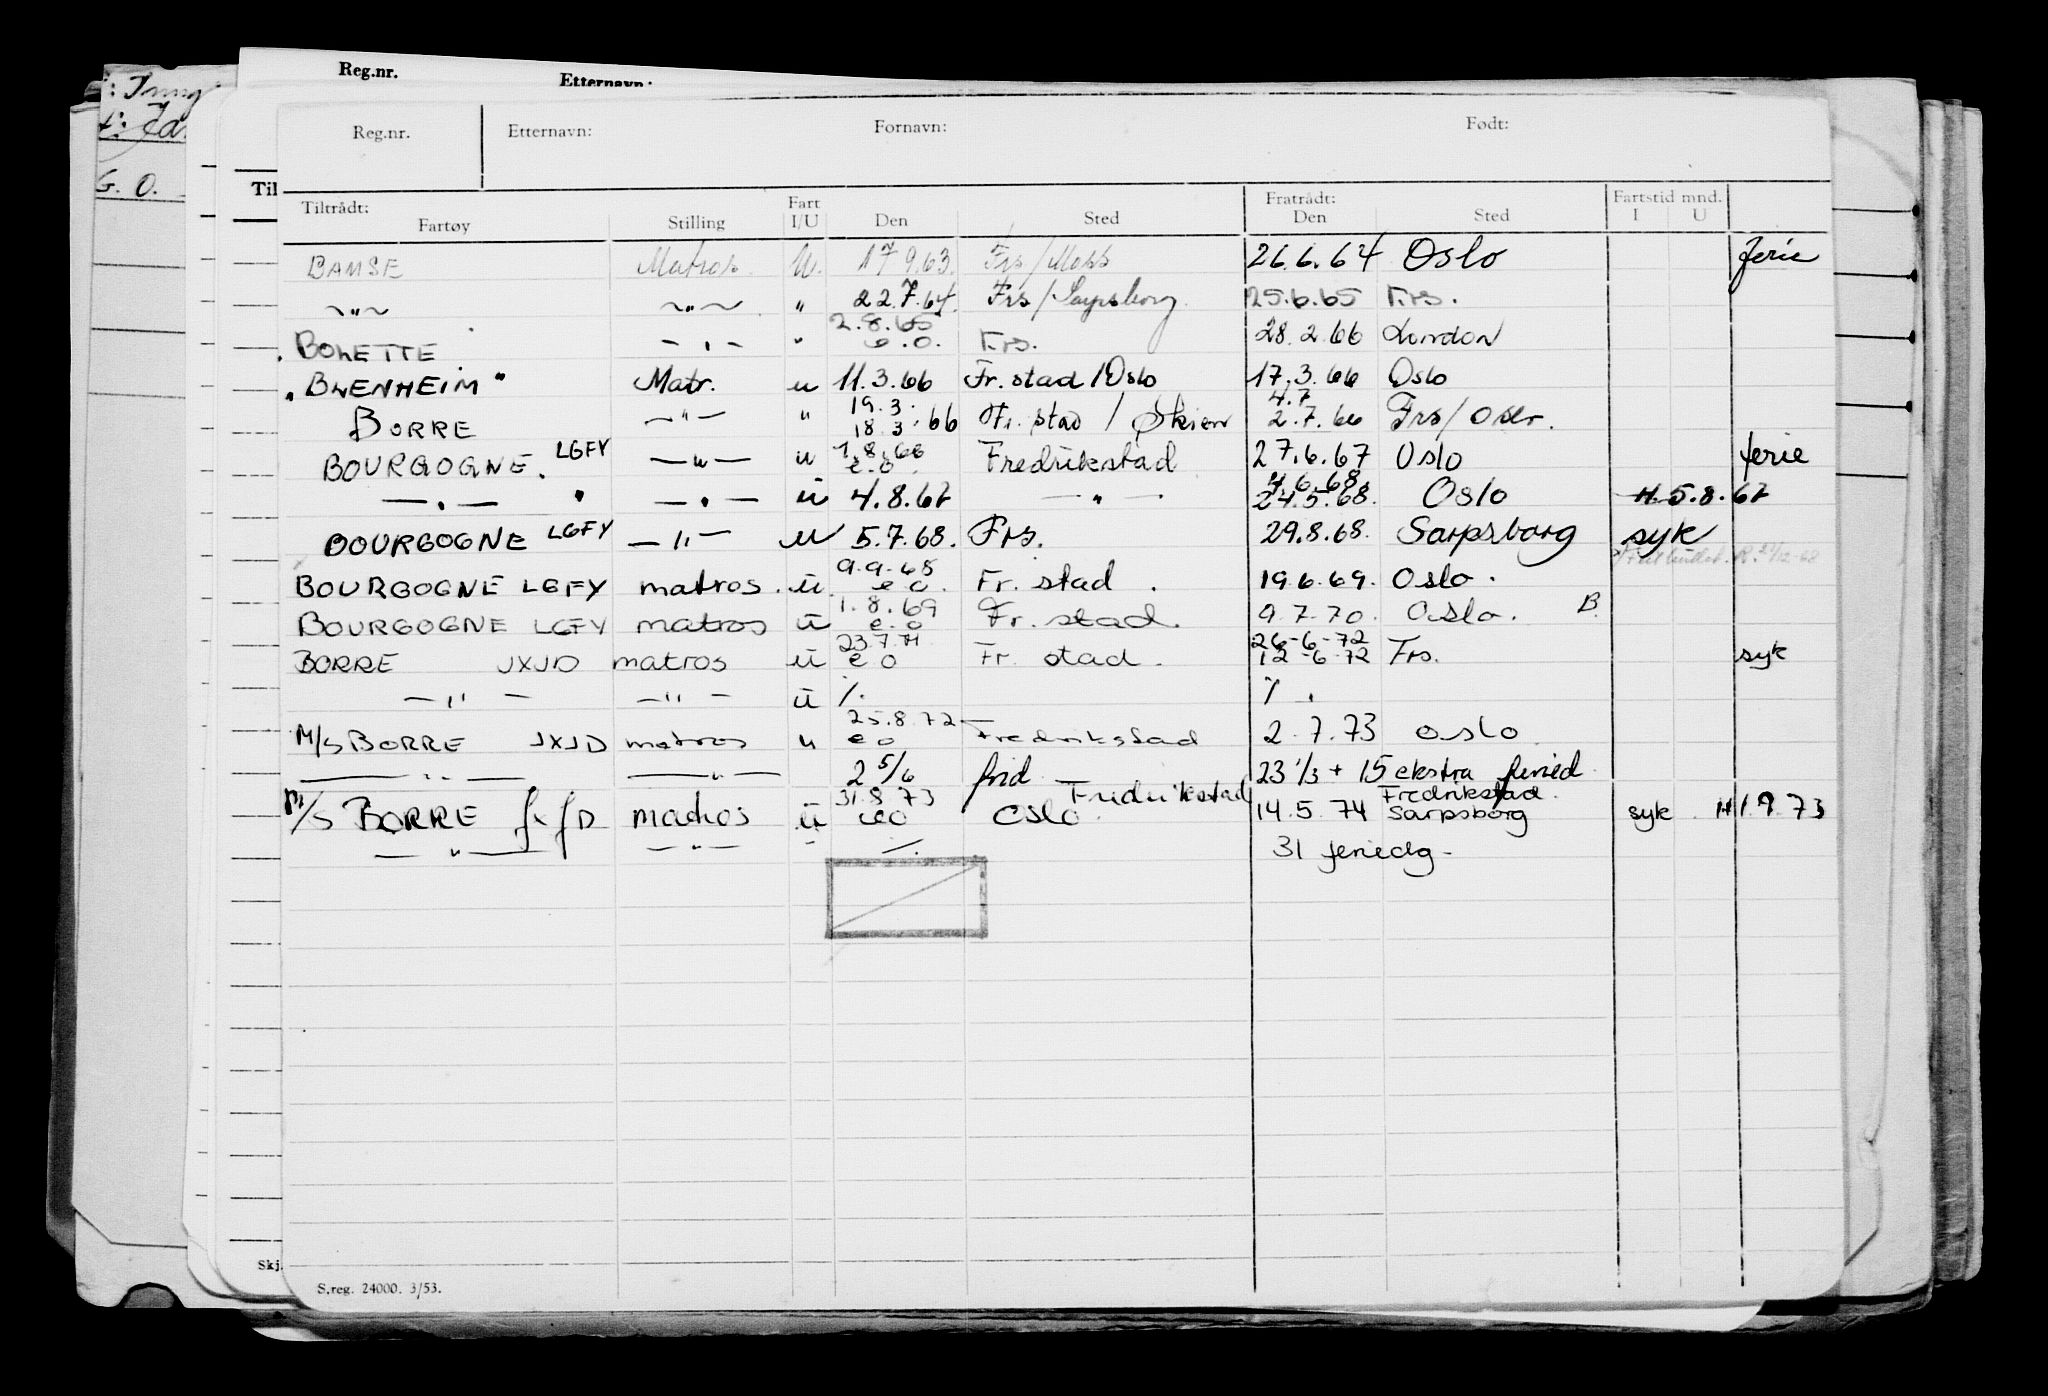 Reg.nr. Etternavn:
G. O.
Til
Reg.nr. Etternavn: Fornavn: Født:
Tiltrådt: Fart Fratrådt: Fartstid mnd.
Fartøy Stilling I/U Den Sted Den Sted I U
BAMSE Matros U. 17 9.63. Frs/Moss 26.6.64 Oslo ferie
~"~ ~"~ " 22.7.64. Frs/Sarpsborg 25.6.65 Frs.
2.8.65
BOLETTE - " - " e.o. Frs. 28.2.66 London
"BLENHEIM" Matr. u 11.3.66 Fr.stad/Oslo 17.3.66 Oslo
19.3. 4.7
BORRE -"- " 18.3.66 Fr.stad / Skien 2.7.66 Frs/Oslo.
1.8.66
BOURGOGNE. LGFY -"- u e.o. Fredrikstad 27.6.67 Oslo ferie
4.6.68.
-"- " -"- ü 4.8.67 -"- 24.5.68. Oslo H.5.8.67
BOURGOGNE LGFY -"- u 5.7.68. Frs. 29.8.68. Sarpsborg syk
9.9.68
BOURGOGNE LGFY matros. ü e o. Fr. stad. 19.6.69. Oslo.
1.8.69
BOURGOGNE LGFY matros ü e.o Fr. stad. 9.7.70. Oslo. B.
23.7.71 26-6-72
BORRE JXJD matros ü e o Fr. stad. 12-6-72 Frs. syk
-"- -"- ü %. %.
25.8.72
M/S BORRE JXJD matros u e o Fredrikstad 2.7.73 Oslo
-"- -"- 2 5/6 frid 23 1/3 + 15 ekstra feried.
31.8.73 Fredrikstad Fredrikstad.
M/S BORRE JXJD matros ü eo Oslo. 14.5.74 Sarpsborg syk H 1.9.73
-"- -"- " %. 31 feriedg-
Skj.
S.reg. 24000. 3/53.